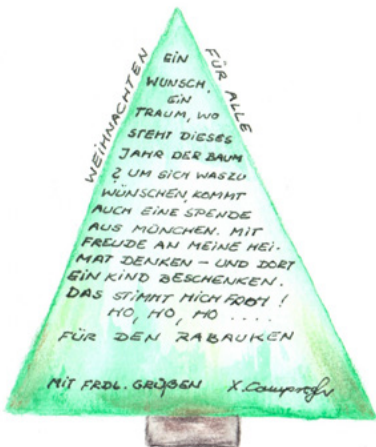 WEIHNACHTEN
FÜR ALLE
EIN
WUNSCH,
EIN
TRAUM, WO
STEHT DIESES
JAHR DER BAUM
? UM SICH WAS ZU
WÜNSCHEN, KOMMT
AUCH EINE SPENDE
AUS MÜNCHEN. MIT
FREUDE AN MEINE HEI-
MAT DENKEN – UND DORT
EIN KIND BESCHENKEN.
DAS STIMMT MICH FROH !
HO, HO, HO ....
FÜR DEN RABAUKEN
MIT FRDL. GRÜßEN X.